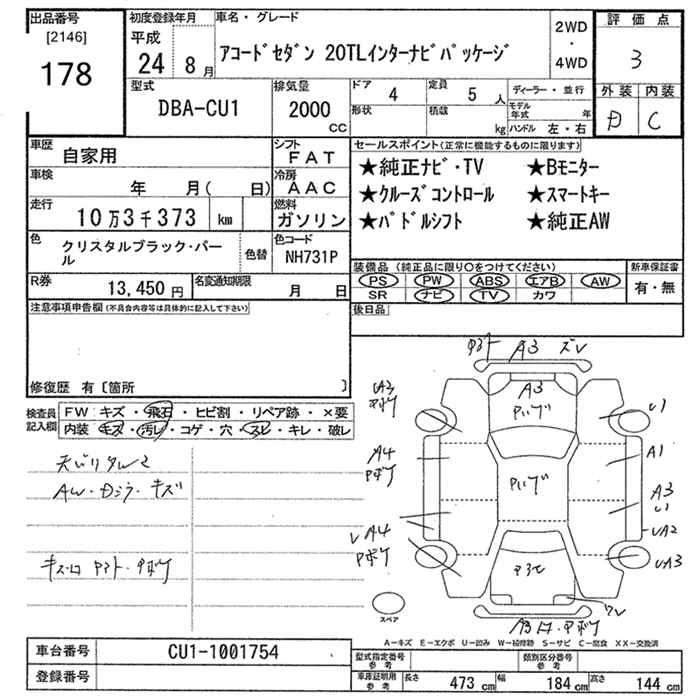 出品番号
[2146]
178
初度登録年月
平成
24 8月
車名・グレード
アコードセダン 20TLインターナビパッケージ
2WD
・
4WD
評価点
3
外装 内装
D C
型式
DBA-CU1
排気量
2000
cc
ドア 4
定員 5人
形状
積載 kg
ディーラー・並行
モデル年式 年
ハンドル 左・右
車歴
自家用
シフト
FAT
車検
年 月( 日)
冷房
AAC
走行
10万3千373 km
燃料
ガソリン
色
クリスタルブラック・パール
色替
色コード
NH731P
R券
13,450円
名変通知期限
月 日
セールスポイント(正常に機能するものに限ります)
★純正ナビ・TV ★Bモニター
★クルーズコントロール ★スマートキー
★パドルシフト ★純正AW
装備品 (純正品に限り○をつけてください)
PS PW ABS エアB AW
SR ナビ TV カワ
新車保証書
有・無
後日品
注意事項申告欄(不具合内容等は具体的に記入して下さい)
修復歴 有〔箇所 〕
検査員記入欄
FW キズ・飛石・ヒビ割・リペア跡・×要
内装 キズ・汚レ・コゲ・穴・スレ・キレ・破レ
AW・キズ
A3
A3
U1
A4
A1
A3
U1
UA2
A4
UA3
スペア
A-キズ E-エクボ U-凹み W-補修跡 S-サビ C-腐食 XX-交換済
車台番号
CU1-1001754
登録番号
型式指定番号
参考
類別区分番号
参考
車庫証明用
参考
長さ 473 cm
幅 184 cm
高さ 144 cm